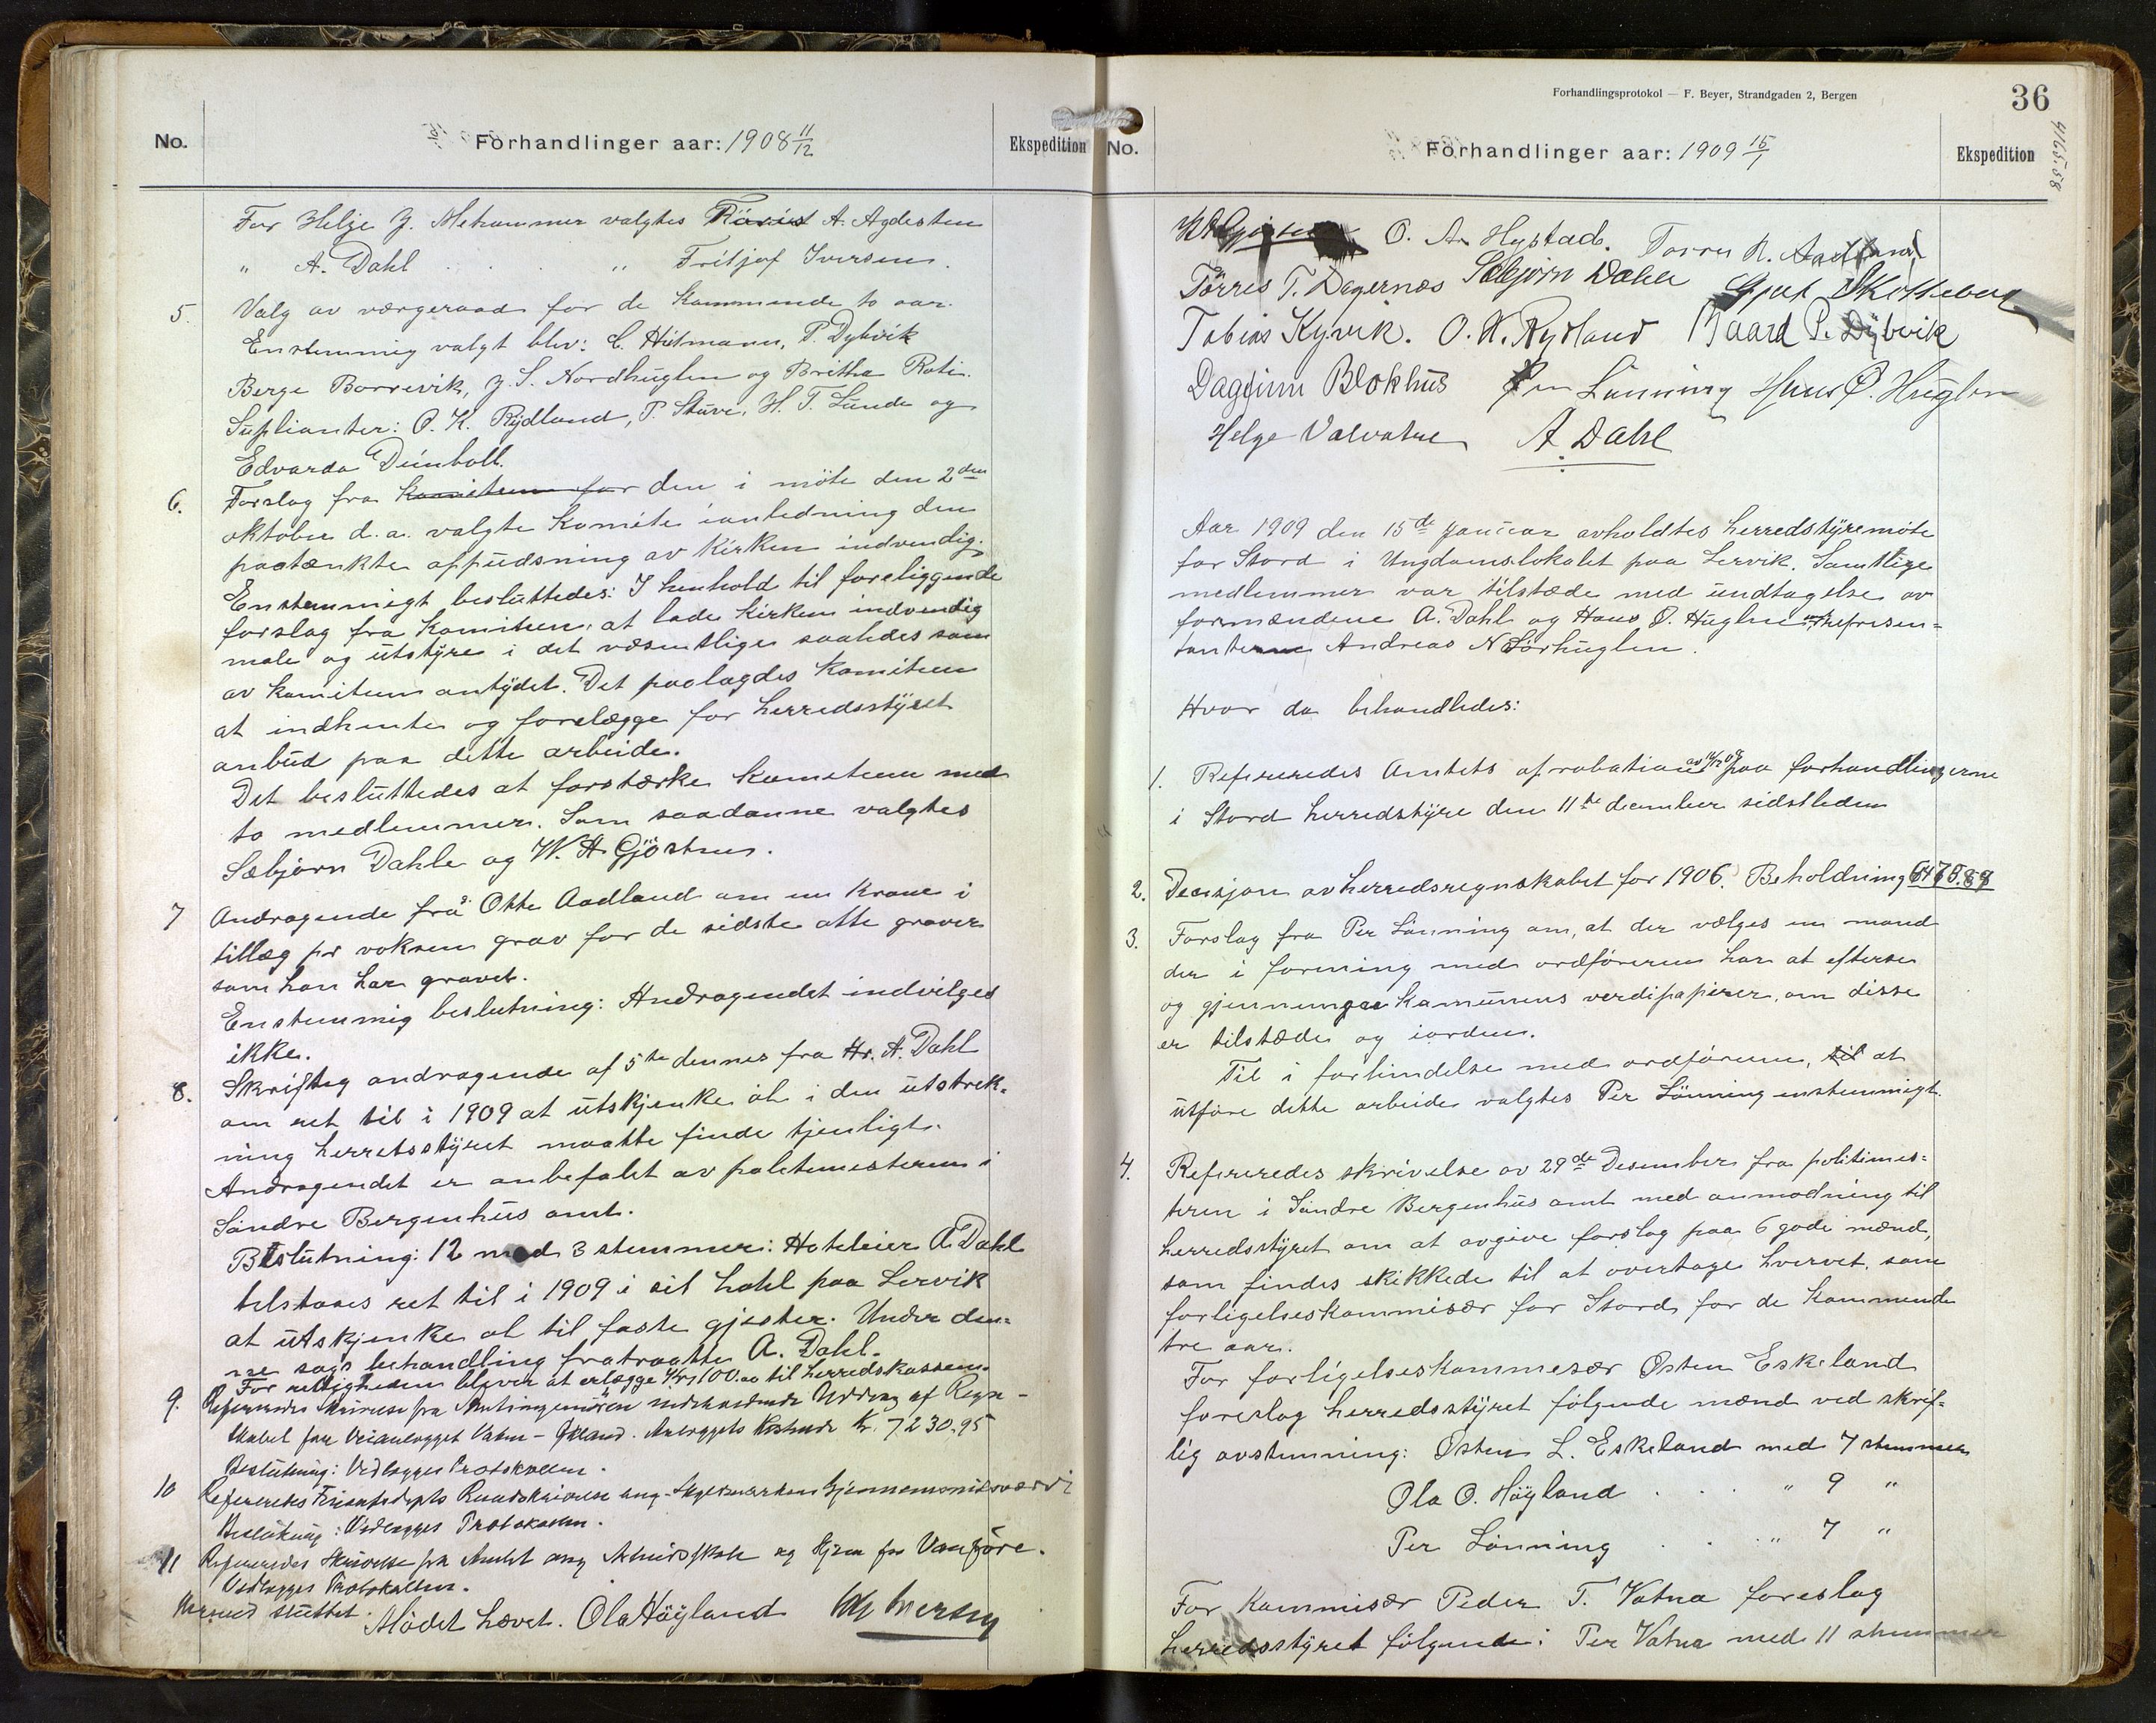 No.
Forhandlinger aar: 1908 11/12
Ekspedition
For Helje J. Mehammer valgtes A. Agdesten
" A. Dahl . . . " Fritjof Iversen.
5. Valg av værgeraad for de kommende to aar.
Enstemmig valgt blev: C. Hütmann, P. Dybvik
Berge Borrevik, J. S. Nordhüglen og Britha Roti.
Süplianter: O. K. Rydland, P. Stüve, H. T. Lunde og
Edvarda Deinboll.
6. Forslag fra komiteen for den i möte den 2den
oktober d.a. valgte komite i anledning den
paatænkte oppüdsning av Kirken indvendig.
Enstemmigt beslüttedes: I henhold til foreliggende
forslag fra Komiteen, at lade Kirken indvendig
male og ütstyre i det væsentlige saaledes som
av komiteen antydet. Det paalagdes komiteen
at indhente og forelægge for herredsstyret
anbüd paa dette arbeide.
Det beslüttedes at forstærke komiteen med
to medlemmer. Som saadanne valgtes
Sæbjørn Dahle og W. H. Gjöstein.
7 Andragende fra Otte Aadland om en Krone i
tillæg pr voksen grav for de sidste otte graver
som han har gravet.
Enstemmig beslutning: Andragendet indvilges
ikke.
8. Skriftlig andragende af 5te dennes fra Hr. A. Dahl
om ret til i 1909 at ütskjenke öl i den ütstrek-
ning herretsstyret maatte finde tjenligt.
Andragendet er anbefalet av politimesteren i
Söndre Bergenhüs amt.
Beslütning: 12 mod 3 stemmer: Hoteleier A. Dahl
tilstaaes ret til i 1909 i sit hotel paa Lervik
at ütskjenke öl til faste gjester. Under den-
ne sags behandling fratraatte A. Dahl.
For rettigheden bliver at erlægge Kr 100.00 til herredskassen.
9. Refereredes Skrivelse fra Amtsingeniören indeholdende Uddrag af Regn-
skabet for Veianlægget Vatne - Ekland. Anlæggets Kostende Kr. 7230.95
Beslütning: Vedlægges Protokollen.
10 Refereredes Rundskrivelse ang. Skydsmærkers Gjennemsnitsværdi
Beslütning: Vedlægges Protokollen.
11 Refereredes Skrivelse fra Amtet ang Arbeidsskole og Hjem for Vanföre.
Vedlægges Protokollen.
Hermed slüttet. Mödet hævet. Ola Höyland
36
Forhandlingsprotokol — F. Beyer, Strandgaden 2, Bergen
No.
Forhandlinger aar: 1909 15/1
Ekspedition
O. A. Hystad. Torres R. Aadland
Törres T. Dagernæs Sæbjörn Dahle Skotteberg
Tobias Kyvik. O. K. Rydland Baard P. Dÿbvik
Dagfinn Blokhüs Per Lönning Hans O. Hüglen
Helge Valvatne A. Dahl
Aar 1909 den 15de janüar avholdtes herredstyremöte
for Stord i Ungdomslokalet paa Lervik. Samtlige
medlemmer var tilstæde med ündtagelse av
formændene A. Dahl og Hans O. Hüglen represen-
tanterne Andreas N Sörhüglen.
Hvor da behandledes:
1. Refereredes Amtets aprobation paa forhandlingerne
i Stord herredstyre den 11te december sidstleden
2. Decisjon av herredsregnskabet for 1906. Beholdning
3. Forslag fra Per Lönning om, at der vælges en mand
der i forening med ordföreren har at efterse
og gjennemgaa kommünens verdipapirer, om disse
er tilstæde og iorden.
Til i forbindelse med ordföreren, til at
ütföre dette arbeide valgtes Per Lönning enstemmigt.
4. Refereredes skrivelse av 29de Desember fra politimes-
teren i Söndre Bergenhüs amt med anmodning til
herredsstyret om at avgive forslag paa 6 gode mænd,
som findes skikkede til at overtage hvervet, som
forligelseskommisær for Stord for de kommende
tre aar.
For forligelseskommesær Østen Eskeland
foreslog herredsstyret fölgende mænd ved skrif-
lig avstemning: Østen L. Eskeland med 7 stemmer
Ola O. Höyland . . . " 9 "
Per Lönning . . . " 7 "
For Kommisær Peder T. Vatna foreslog
herredsstyret fölgende: Per Vatna med 11 stemmer